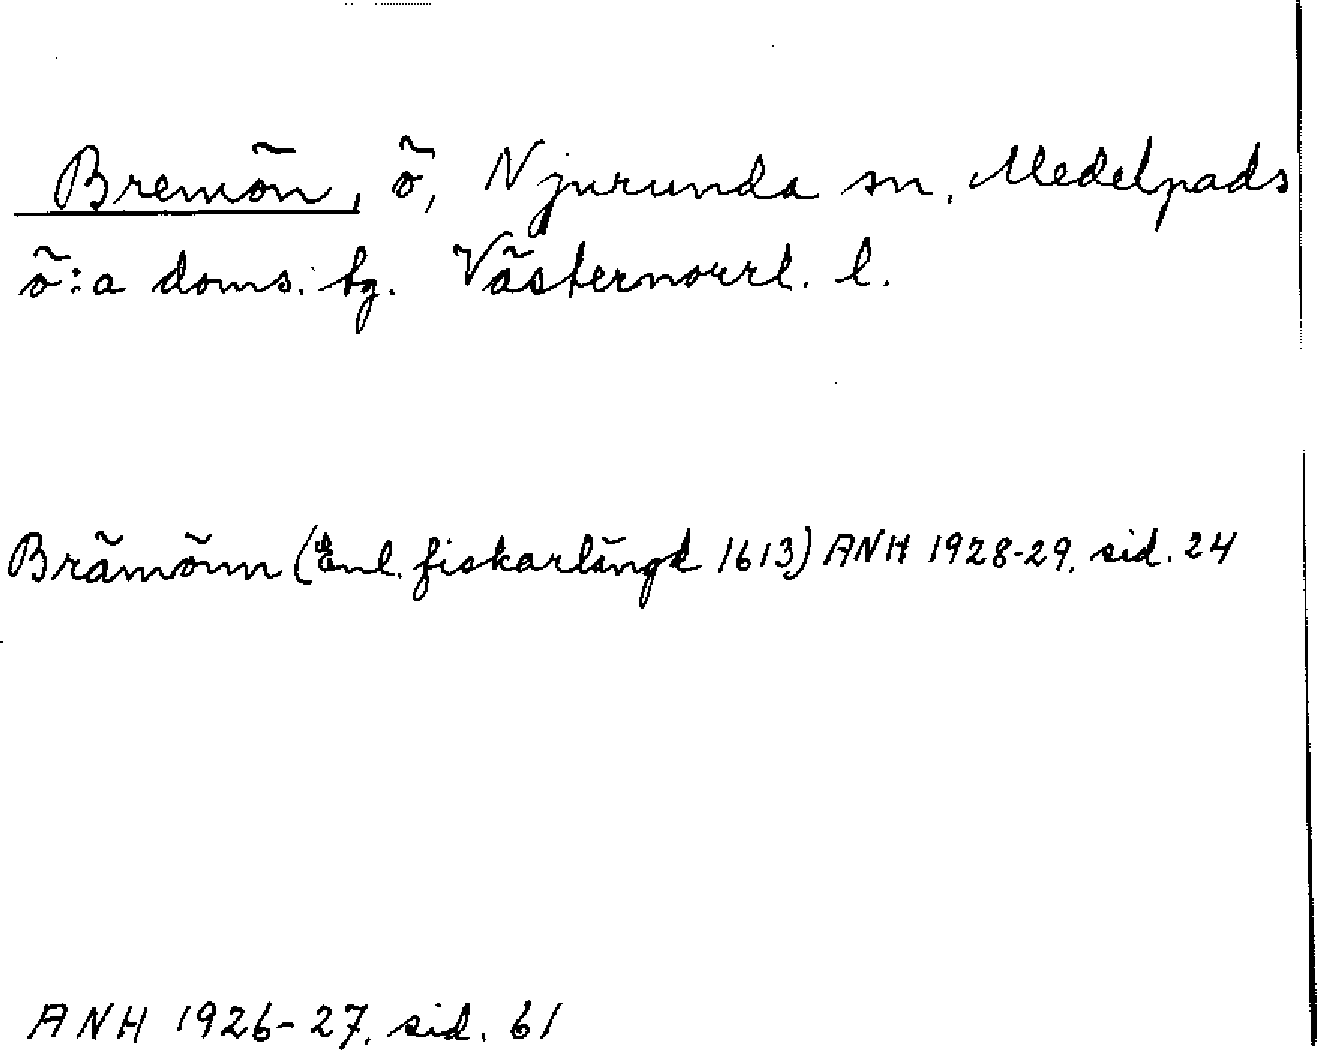 Bremön, ö, Njurunda sn, Medelpads
ö:a doms. tg. Västernorrl. l.
Brämönn (Enl. fiskarlängd 1613) ANH 1928-29, sid. 24
ANH 1926-27, sid. 61